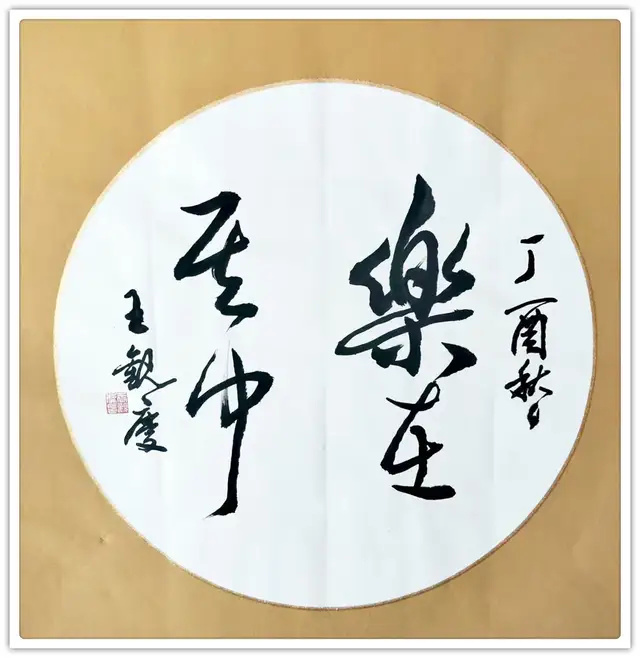 丁酉秋
樂在
其中
王觀